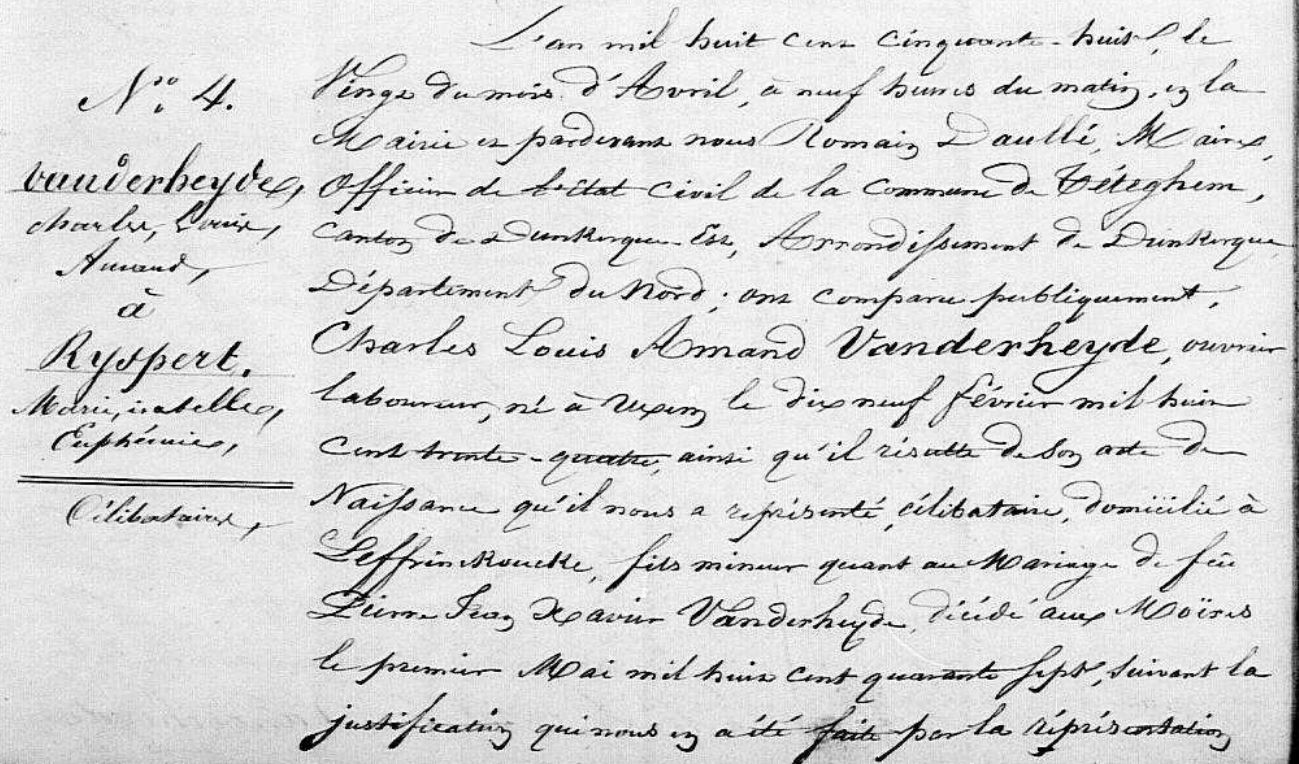 N.º 4.
Vanderheyde,
Charles, Louis,
Amand,
à
Ryspert.
Marie, isabelle,
Euphémie,
Célibataires,
L'an mil huit cent cinquante-huit, le
Vingt du mois d'Avril, à neuf heures du matin, en la
Mairie et pardevant nous Romain Daullé, Maire,
Officier de l'état civil de la Commune de Téteghem,
Canton de Dunkerque-Est, Arrondissement de Dunkerque
Département du Nord; ont comparu publiquement,
Charles Louis Amand Vanderheyde, ouvrier
laboureur, né à Uxem le dix neuf février mil huit
cent trente-quatre, ainsi qu'il résulte de son acte de
Naissance qu'il nous a représenté, célibataire, domicilié à
Leffrinckoucke, fils mineur quant au Mariage de feu
Pierre Jean Xavier Vanderheyde, décédé aux Moëres
le premier Mai mil huit cent quarante sept, suivant la
justification qui nous en a été faite par la réprésentation